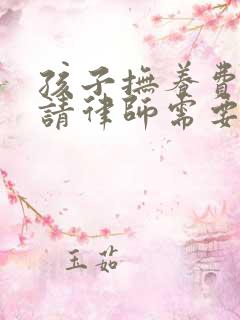 孩子撫養費
請律師需要
玉茹